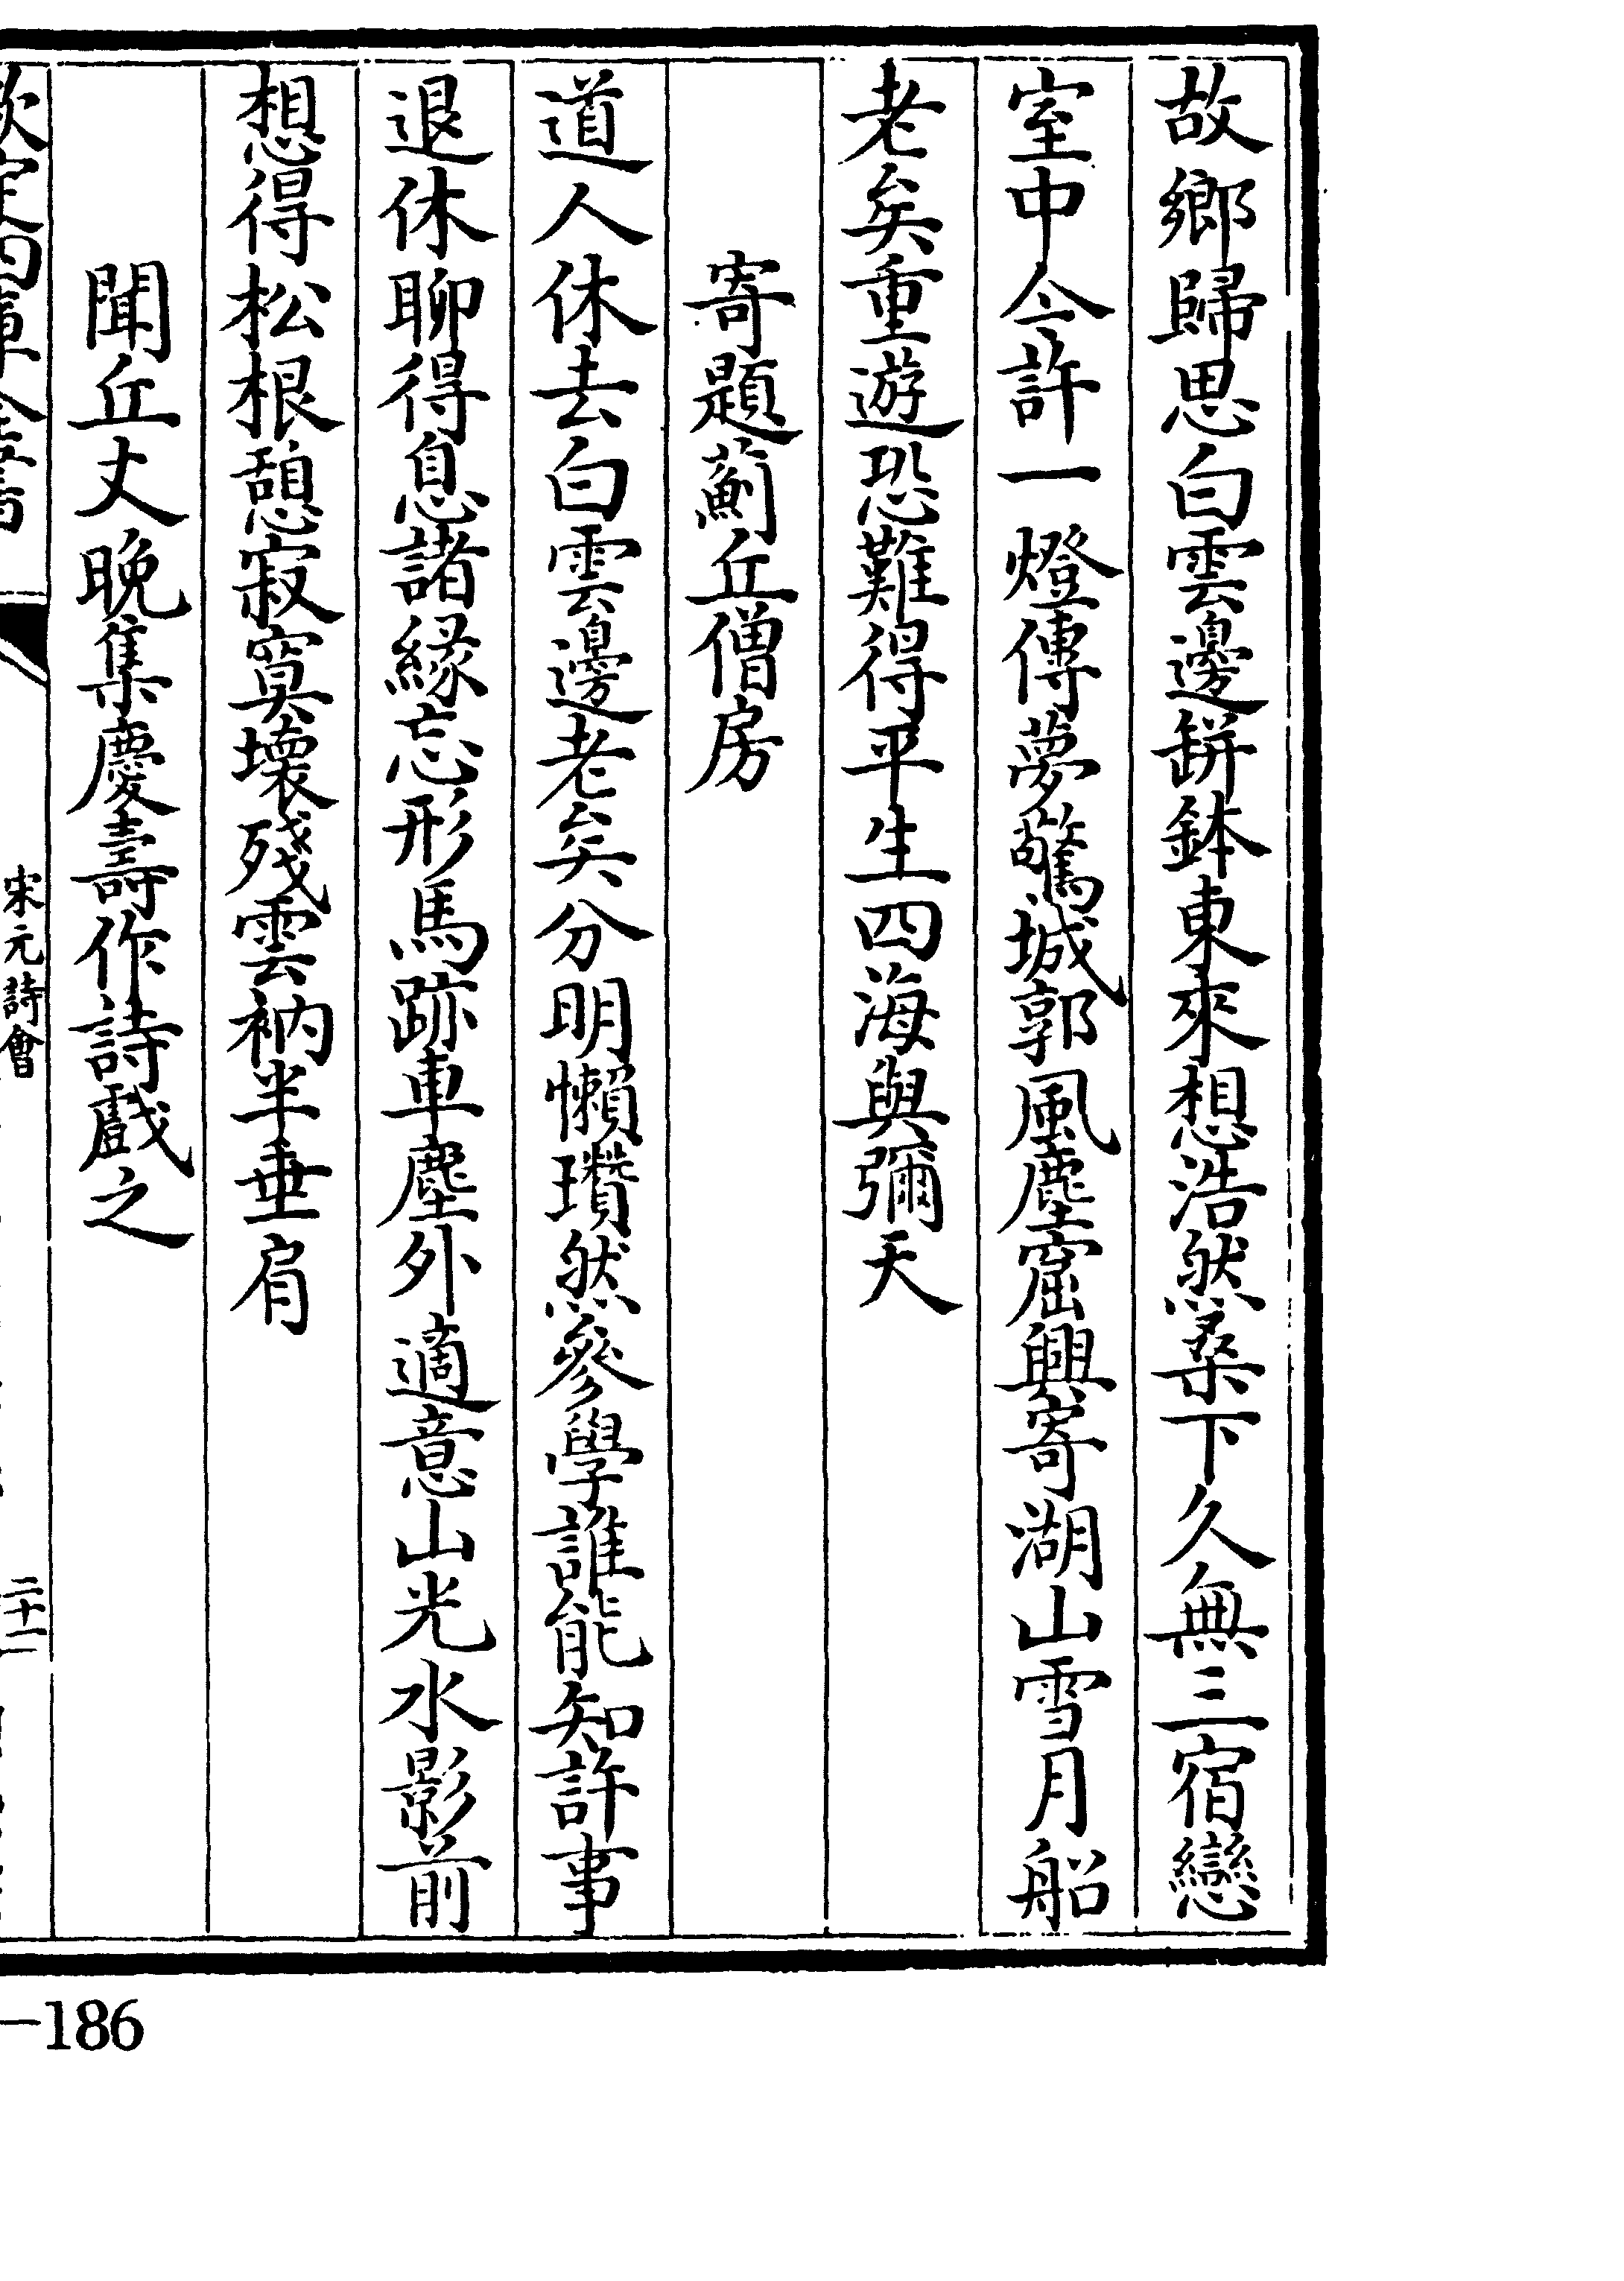 故鄉歸思白雲邊缾鉢東來想浩然桑下久無三宿戀
室中今許一燈傳夢驚城郭風塵窟興寄湖山雪月船
老矣重遊恐難得平生四海與彌天
寄題薊丘僧房
道人休去白雲邊老矣分明懶瓚然參學誰能知許事
退休聊得息諸緣忘形馬跡車塵外適意山光水影前
想得松根憩寂寞壞殘雲衲半垂肩
聞丘丈晚集慶壽作詩戲之
欽定四庫全書
宋元詩會
二十二
—186